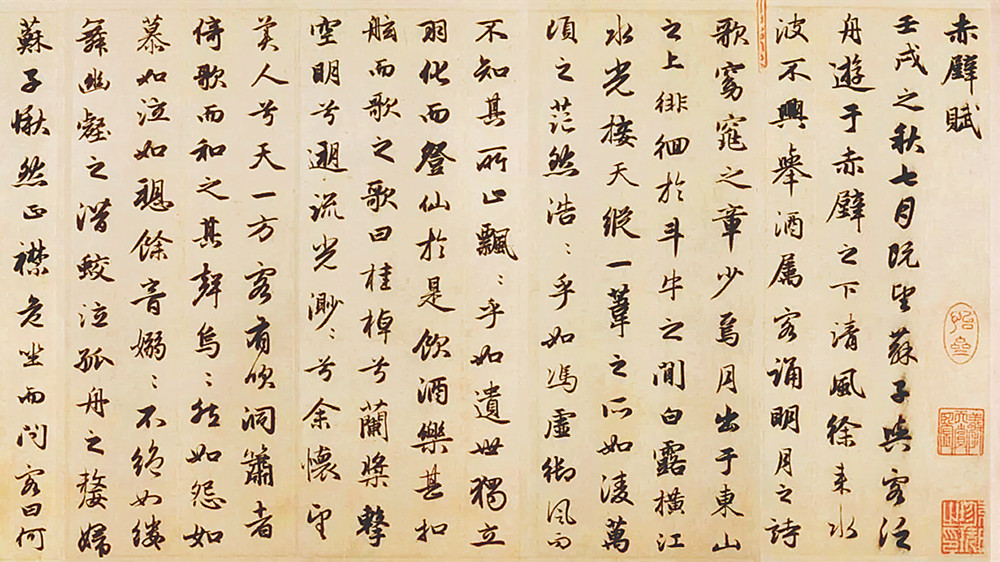 赤壁賦
壬戌之秋七月既望蘇子與客泛
舟遊于赤壁之下清風徐来水
波不興舉酒属客誦明月之詩
歌窈窕之章少焉月出于東山
之上徘徊於斗牛之間白露横江
水光接天縱一葦之所如淩萬
頃之茫然浩〻乎如馮虚御風而
不知其所止飄〻乎如遺世獨立
羽化而登仙於是飲酒樂甚扣
舷而歌之歌曰桂棹兮蘭槳擊
空明兮遡流光渺〻兮余懷望
美人兮天一方客有吹洞簫者
倚歌而和之其聲烏〻然如怨如
慕如泣如愬餘音嫋〻不絶如縷
舞幽壑之潛蛟泣孤舟之嫠婦
蘇子愀然正襟危坐而問客曰何